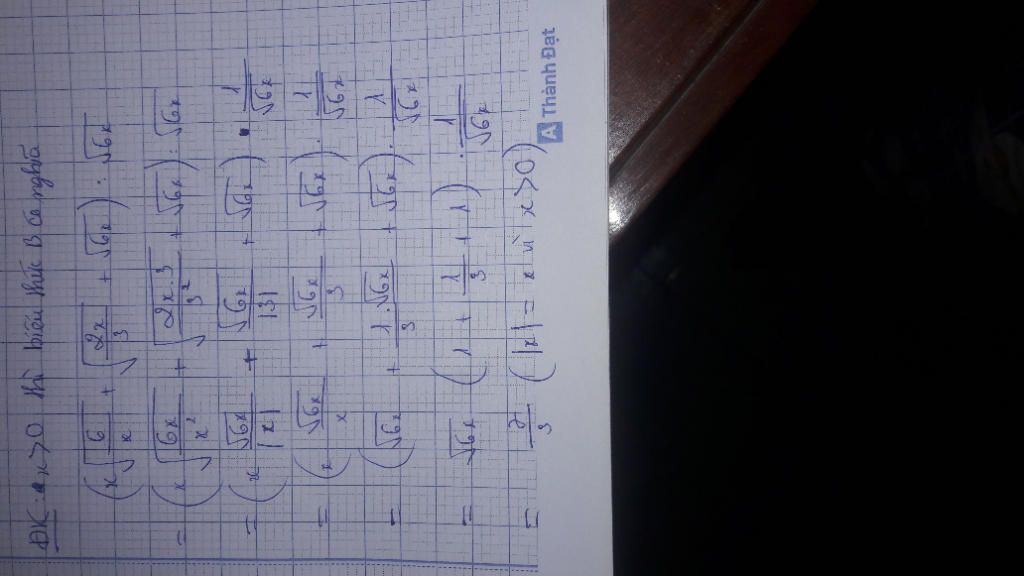 ĐK: x > 0 thì biểu thức B có nghĩa
(x√(6/x) + √(2x/3) + √(6x)) : √(6x)
= (x√(6x/x²) + √(2x.3/3²) + √(6x)) : √(6x)
= (x √(6x)/|x| + √(6x)/|3| + √(6x)) . 1/√(6x)
= (x √(6x)/x + √(6x)/3 + √(6x)) . 1/√(6x)
= (√(6x) + 1.√(6x)/3 + √(6x)) . 1/√(6x)
= √(6x) (1 + 1/3 + 1) . 1/√(6x)
= 7/3 (|x| = x vì x > 0)
A Thành Đạt